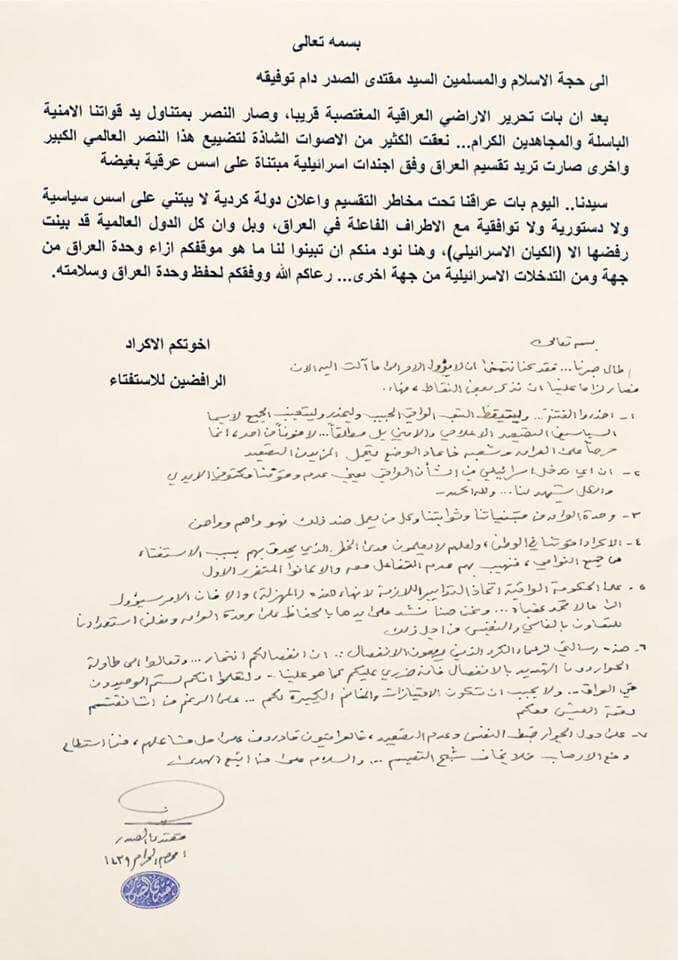 بسمه تعالى
الى حجة الاسلام والمسلمين السيد مقتدى الصدر دام توفيقه
بعد ان بات تحرير الاراضي العراقية المغتصبة قريبا، وصار النصر بمتناول يد قواتنا الامنية
الباسلة والمجاهدين الكرام... نعقت الكثير من الاصوات الشاذة لتضييع هذا النصر العالمي الكبير
واخرى صارت تريد تقسيم العراق وفق اجندات اسرائيلية مبتناة على اسس عرقية بغيضة
سيدنا.. اليوم بات عراقنا تحت مخاطر التقسيم واعلان دولة كردية لا يبتني على اسس سياسية
ولا دستورية ولا توافقية مع الاطراف الفاعلة في العراق، وبل وان كل الدول العالمية قد بينت
رفضها الا (الكيان الاسرائيلي)، وهنا نود منكم ان تبينوا لنا ما هو موقفكم ازاء وحدة العراق من
جهة ومن التدخلات الاسرائيلية من جهة اخرى... رعاكم الله ووفقكم لحفظ وحدة العراق وسلامته.
اخوتكم الاكراد
الرافضين للاستفتاء
بسمه تعالى
طال صبرنا... فقد كنا نتمنى ان لا يؤول الامر الى ما آلت اليه الان
فصار لزاما علينا ان نذكر بعض النقاط، منها:
١- احذروا الفتنة... وليتيقظ الشعب العراقي الحبيب وليحذر وليتجنب الجميع لا سيما
السياسيين التصعيد الاعلامي والامني بل مطلقاً... لا خوفاً من احد، انما
حرصاً على العراق وشعبه فما عاد الوضع يتحمل المزيد من التصعيد
٢- ان اي تدخل اسرائيلي في الشأن العراقي يعني عدم وقوفنا مكتوفي الايدي
والكل يشهد لنا... ولله الحمد
٣- وحدة العراق من متبنياتنا وثوابتنا وكل من يعمل ضد ذلك فهو واهم وواهن
٤- الاكراد اخوتنا في الوطن، ولعلهم لا يعلمون مدى الخطر الذي يحدق بهم بسبب الاستفتاء
من جميع النواحي، فنهيب بهم عدم التفاعل معه والا كانوا المتضرر الاول
٥- على الحكومة العراقية اتخاذ التدابير اللازمة لانهاء هذه (المهزلة) والا فان الامر سيؤول
الى ما لا تحمد عقباه... ونحن هنا نشد على ايديها بالحفاظ على وحدة العراق ونعلن استعدادنا
للتعاون بالغالي والنفيس من اجل ذلك
٦- هذه رسالتي لزعماء الكرد الذين يريدون الانفصال: ان انفصالكم انتحار... وتعالوا الى طاولة
الحوار دون التهديد بالانفصال فانه ضرري عليكم كما هو علينا - ولتعلموا انكم لستم الوحيدون
في العراق... ولا يجب ان تكون الامتيازات والمغانم الكبيرة لكم... على الرغم من اننا نقتسم
لقمة العيش معكم
٧- على دول الجوار ضبط النفس وعدم التصعيد، فالعراقيون قادرون على حل مشاكلهم، فمن استطاع
دفع الارهاب فلا يخاف شبح التقسيم... والسلام على من اتبع الهدى
مقتدى الصدر
محرم الحرام ١٤٣٩